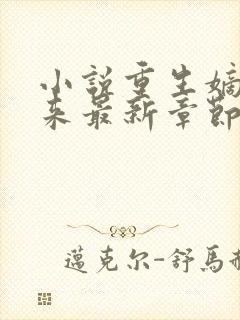 小说重生嫡
来最新章节
邁克尔-舒馬赫